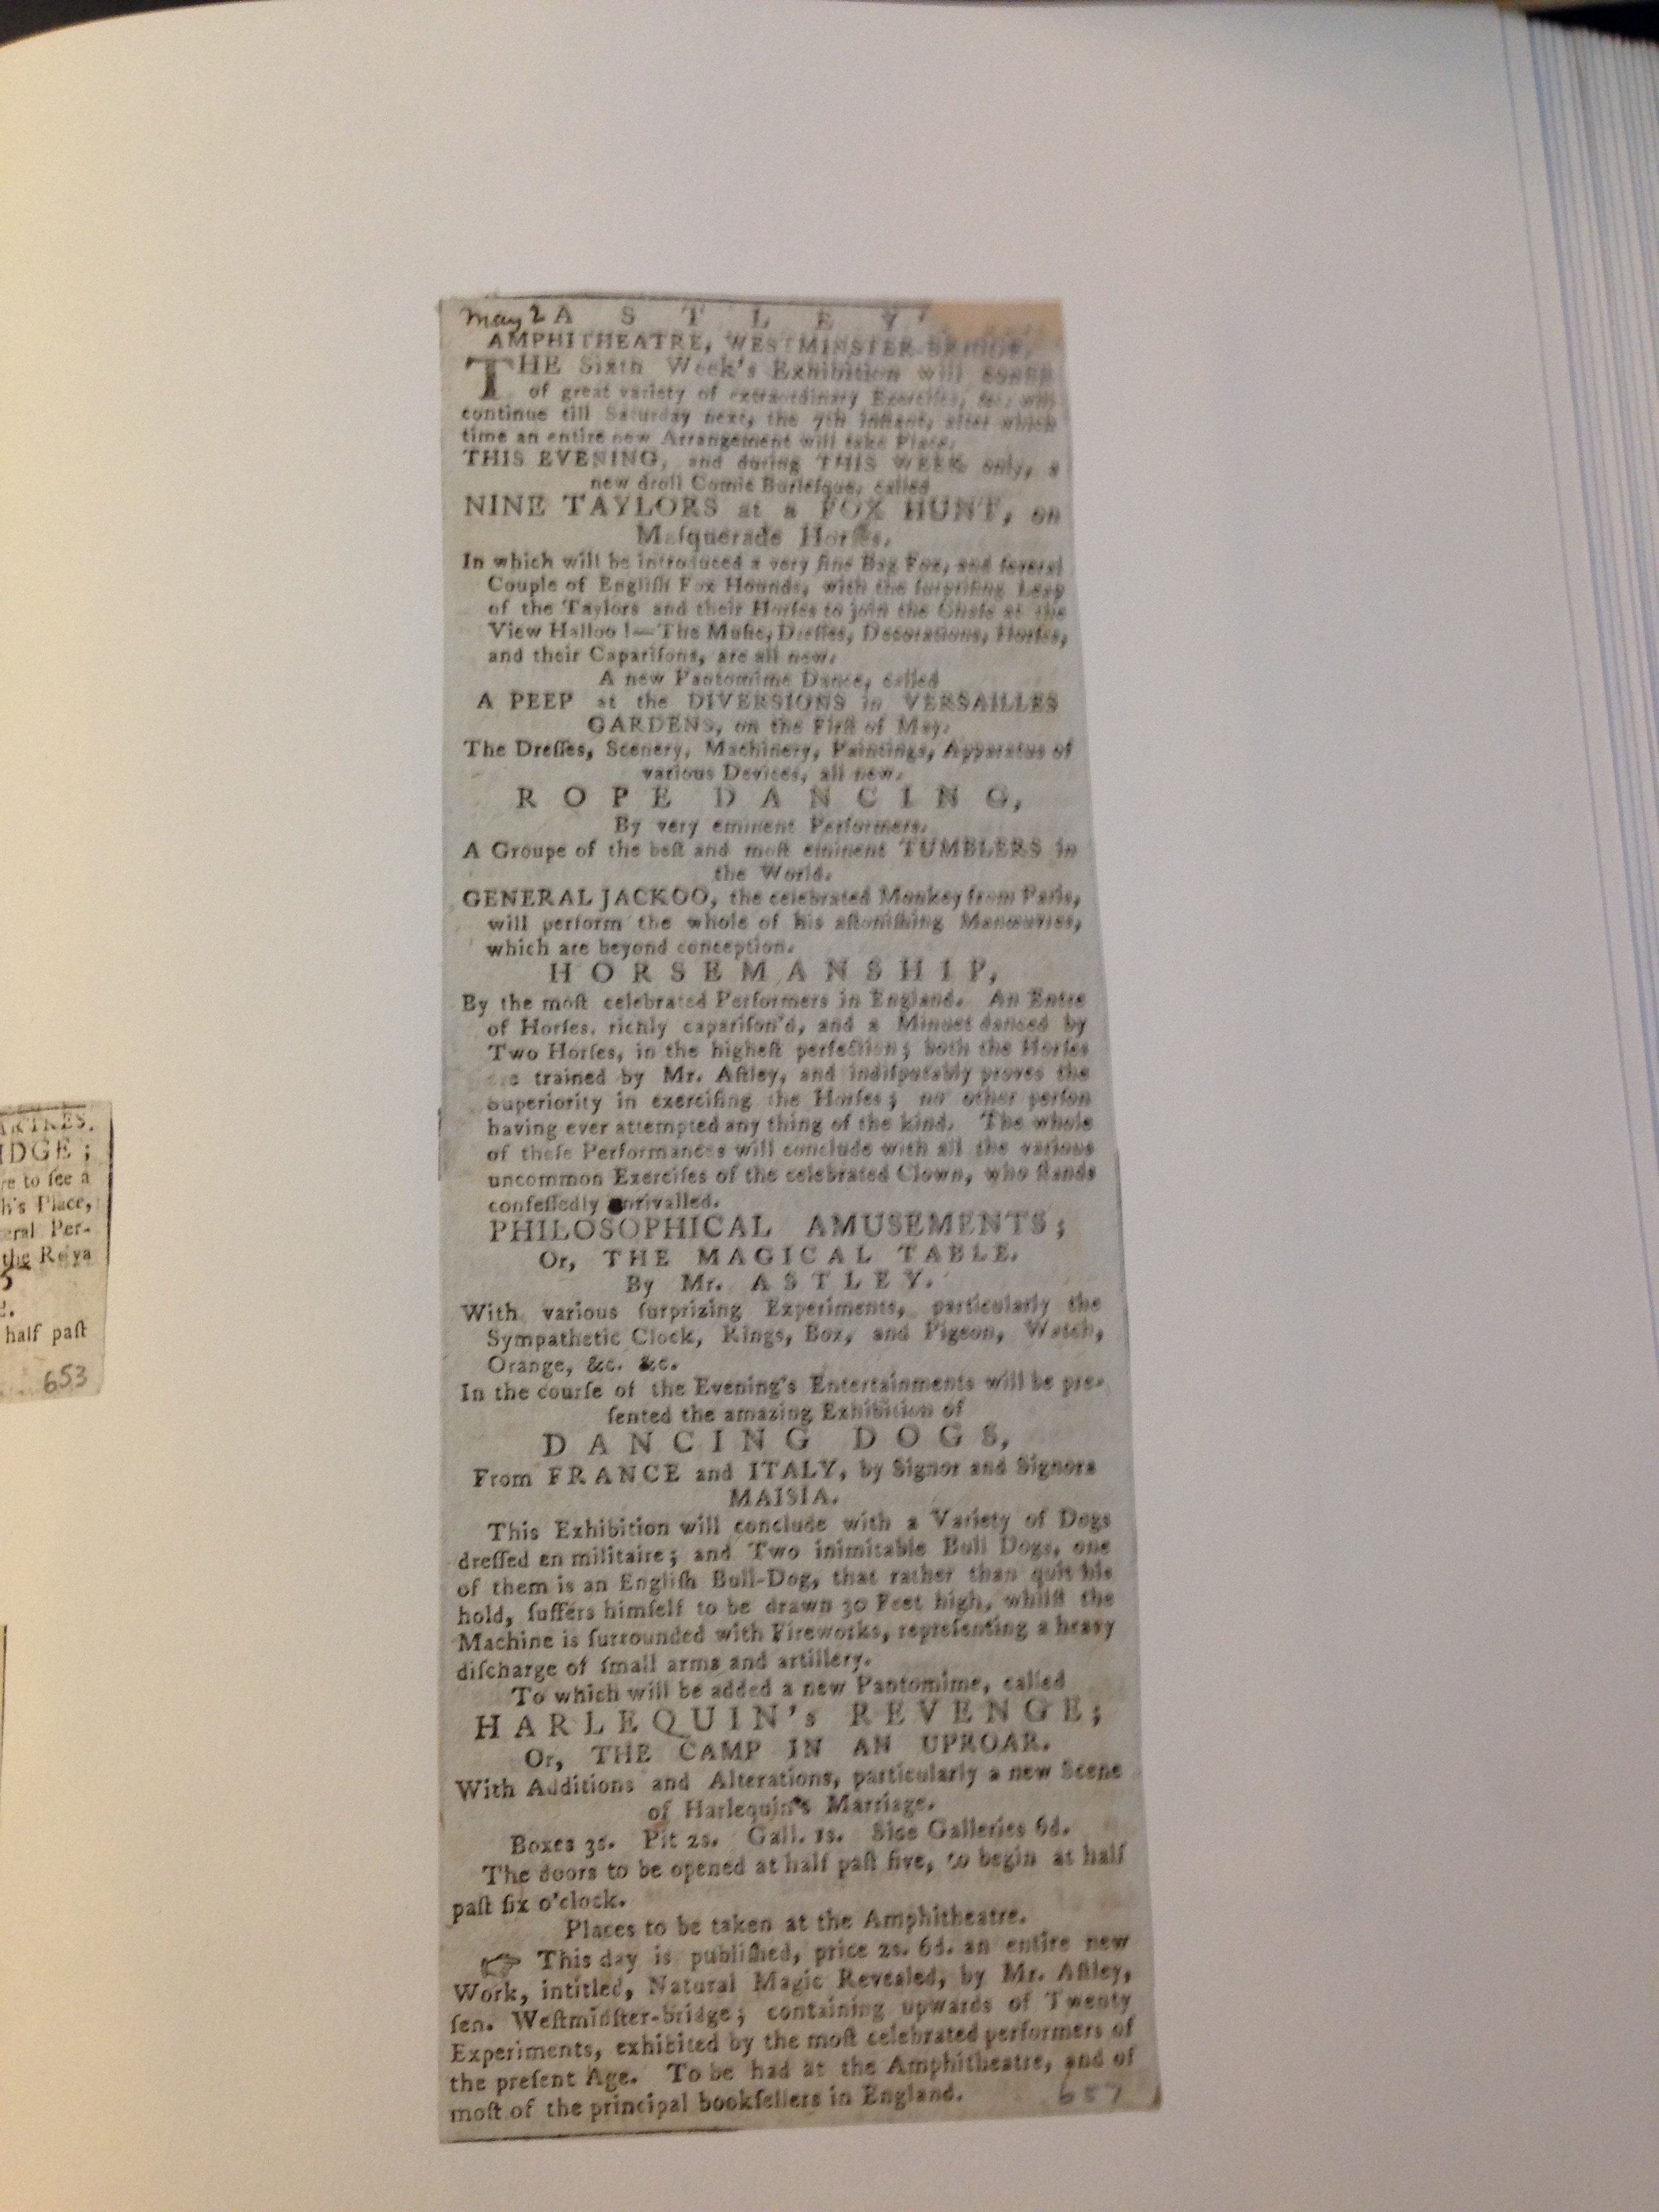 ARTRES.
IDGE;
re to ſee a
h's Place,
eral Per-
the Roya
5
half paſt
653
May 2
ASTLEY'
AMPHITHEATRE, WESTMINSTER-BRIDGE.
THE Sixth Week's Exhibition will
of great variety of extraordinary Exerciſes, &c. will
continue till Saturday next, the 7th inſtant, after which
time an entire new Arrangement will take Place.
THIS EVENING, and during THIS WEEK only, a
new droll Comic Burleſque, called
NINE TAYLORS at a FOX HUNT, on
Maſquerade Horſes.
In which will be introduced a very fine Bag Fox, and ſeveral
Couple of Engliſh Fox Hounds, with the ſurpriſing Leap
of the Taylors and their Horſes to join the Chaſe at the
View Halloo!—The Muſic, Dreſſes, Decorations, Horſes,
and their Capariſons, are all new.
A new Pantomime Dance, called
A PEEP at the DIVERSIONS in VERSAILLES
GARDENS, on the Firſt of May.
The Dreſſes, Scenery, Machinery, Paintings, Apparatus of
various Devices, all new.
ROPE DANCING,
By very eminent Performers.
A Groupe of the beſt and moſt eminent TUMBLERS in
the World.
GENERAL JACKOO, the celebrated Monkey from Paris,
will perform the whole of his aſtoniſhing Manœuvres,
which are beyond conception.
HORSEMANSHIP,
By the moſt celebrated Performers in England. An Entre
of Horſes, richly capariſon'd, and a Minuet danced by
Two Horſes, in the higheſt perfection; both the Horſes
are trained by Mr. Aſtley, and indiſputably proves the
Superiority in exerciſing the Horſes; no other perſon
having ever attempted any thing of the kind. The whole
of theſe Performances will conclude with all the various
uncommon Exerciſes of the celebrated Clown, who ſtands
confeſſedly unrivalled.
PHILOSOPHICAL AMUSEMENTS;
Or, THE MAGICAL TABLE.
By Mr. ASTLEY.
With various ſurprizing Experiments, particularly the
Sympathetic Clock, Rings, Box, and Pigeon, Watch,
Orange, &c. &c.
In the courſe of the Evening's Entertainments will be pre-
ſented the amazing Exhibition of
DANCING DOGS,
From FRANCE and ITALY, by Signor and Signora
MAISIA.
This Exhibition will conclude with a Variety of Dogs
dreſſed en militaire; and Two inimitable Bull Dogs, one
of them is an Engliſh Bull-Dog, that rather than quit his
hold, ſuffers himſelf to be drawn 30 Feet high, whilſt the
Machine is ſurrounded with Fireworks, repreſenting a heavy
diſcharge of ſmall arms and artillery.
To which will be added a new Pantomime, called
HARLEQUIN's REVENGE;
Or, THE CAMP IN AN UPROAR.
With Additions and Alterations, particularly a new Scene
of Harlequin's Marriage.
Boxes 3s. Pit 2s. Gall. 1s. Side Galleries 6d.
The doors to be opened at half paſt five, to begin at half
paſt ſix o'clock.
Places to be taken at the Amphitheatre.
☞ This day is publiſhed, price 2s. 6d. an entire new
Work, intitled, Natural Magic Revealed, by Mr. Aſtley,
ſen. Weſtminſter-bridge; containing upwards of Twenty
Experiments, exhibited by the moſt celebrated performers of
the preſent Age. To be had at the Amphitheatre, and of
moſt of the principal bookſellers in England.
657